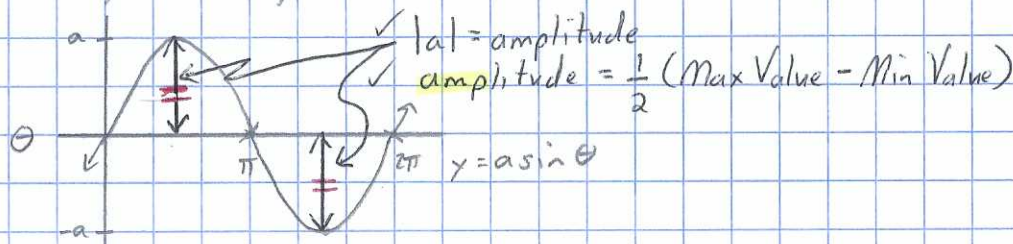 a
✓ |a| = amplitude
✓ amplitude = 1/2 (Max Value - Min Value)
θ
π
2π
y = a sin θ
-a